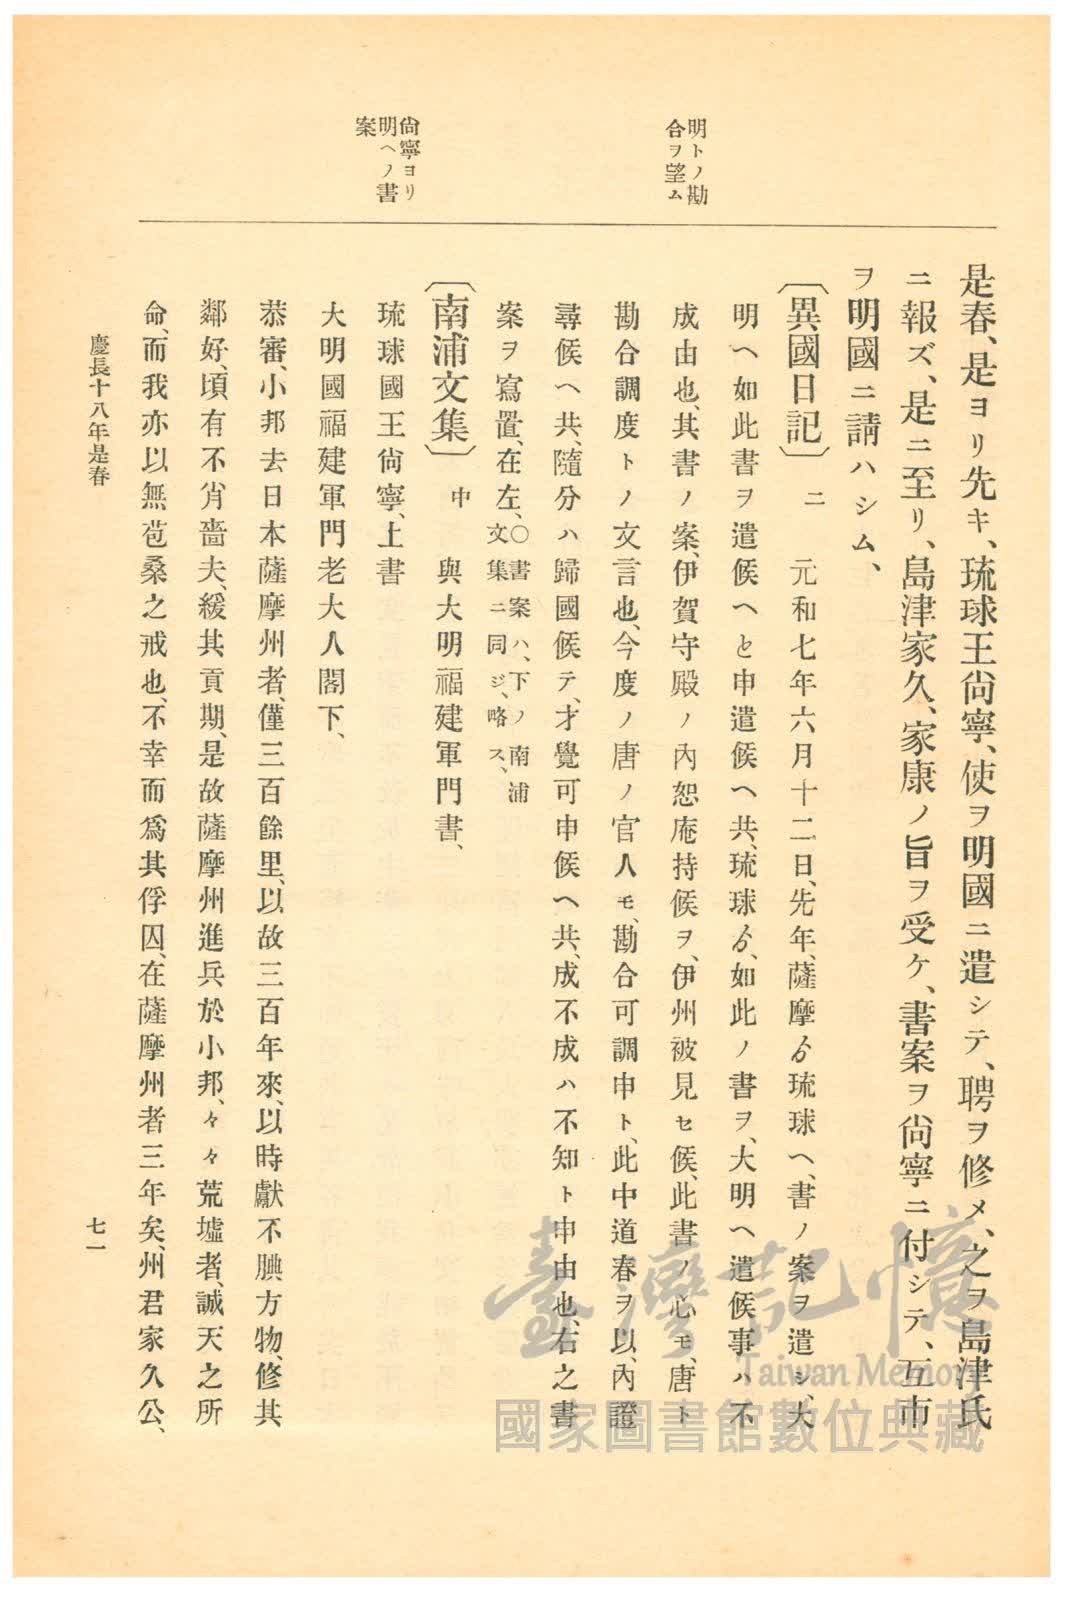 明トノ勘
合ヲ望ム
尙寧ヨリ
明ヘノ書
案
是春、是ヨリ先キ、琉球王尙寧、使ヲ明國ニ遣シテ、聘ヲ修メ、之ヲ島津氏
ニ報ズ、是ニ至リ、島津家久、家康ノ旨ヲ受ケ、書案ヲ尙寧ニ付シテ、互市
ヲ明國ニ請ハシム、
〔異國日記〕 二 元和七年六月十二日、先年、薩摩ゟ琉球ヘ、書ノ案ヲ遣シ、大
明ヘ如此書ヲ遣候ヘと申遣候ヘ共、琉球ゟ、如此ノ書ヲ、大明ヘ遣候事ハ不
成由也、其書ノ案、伊賀守殿ノ內恕庵持候ヲ、伊州被見セ候、此書ノ心モ、唐ト
勘合調度トノ文言也、今度ノ唐ノ官人モ、勘合可調申ト、此中道春ヲ以、內證
尋候ヘ共、隨分ハ歸國候テ、才覺可申候ヘ共、成不成ハ不知ト申由也、右之書
案ヲ寫置、在左、○書案ハ、下ノ南浦
文集ニ同ジ、略ス、
〔南浦文集〕 中 與大明福建軍門書、
琉球國王尙寧、上書
大明國福建軍門老大人閣下、
恭審、小邦去日本薩摩州者、僅三百餘里、以故三百年來、以時獻不腆方物、修其
鄰好、頃有不肖嗇夫、緩其貢期、是故薩摩州進兵於小邦、々々荒墟者、誠天之所
命、而我亦以無苞桑之戒也、不幸而爲其俘囚、在薩摩州者三年矣、州君家久公、
慶長十八年是春
七一
臺灣記憶
Taiwan Memory
國家圖書館數位典藏